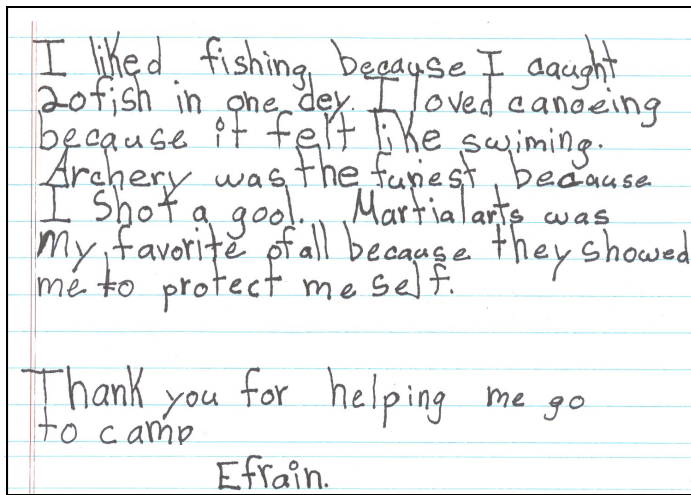 I liked fishing because I caught
20 fish in one dey. I loved canoeing
because it felt like swiming.
Archery was the funest because
I shot a gool. Martial arts was
my favorite of all because they showed
me to protect me self.
Thank you for helping me go
to camp
Efrain.